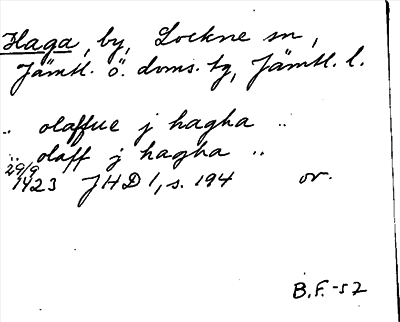 Haga, by, Lockne sn,
Jämtl. ö. doms. tg, Jämtl. l.
.. olaffue j hagha ..
.. olaff j hagha ..
29/9
1423 JHD 1, s. 194 or.
B.F.-52